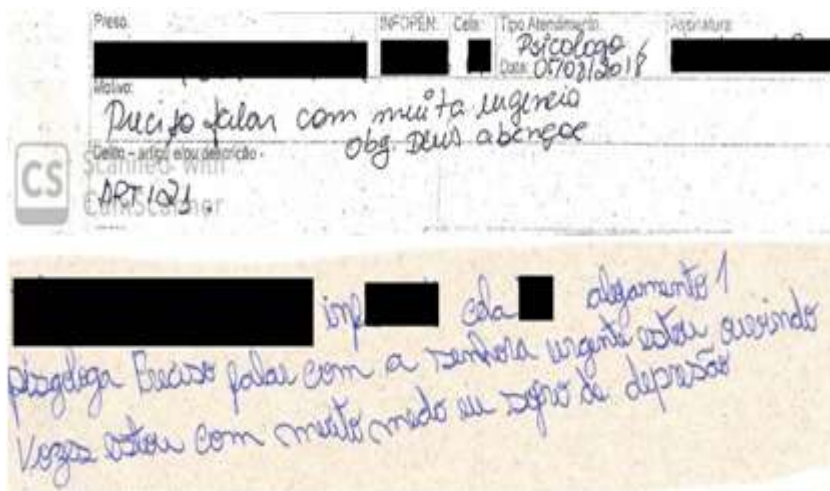 Preso: INFOPEN: Cela: Tipo Atendimento: Assinatura:
Psicologo
Data: 07/08/2018
Motivo:
Preciso falar com muita urgencia
obg. Deus abençoe
Delito - artigo e/ou descrição -
CS Scanned with
ART 121.
CamScanner
inf cela alojamento 1
psogologa Preciso falar com a senhora urgente estou ouvindo
vozes estou com muito medo eu sofro de depresão